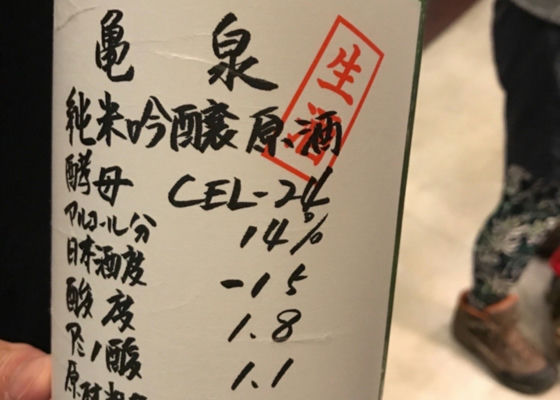 亀泉
生酒
純米吟醸原酒
酵母 CEL-24
アルコール分 14%
日本酒度 -15
酸度 1.8
アミノ酸 1.1